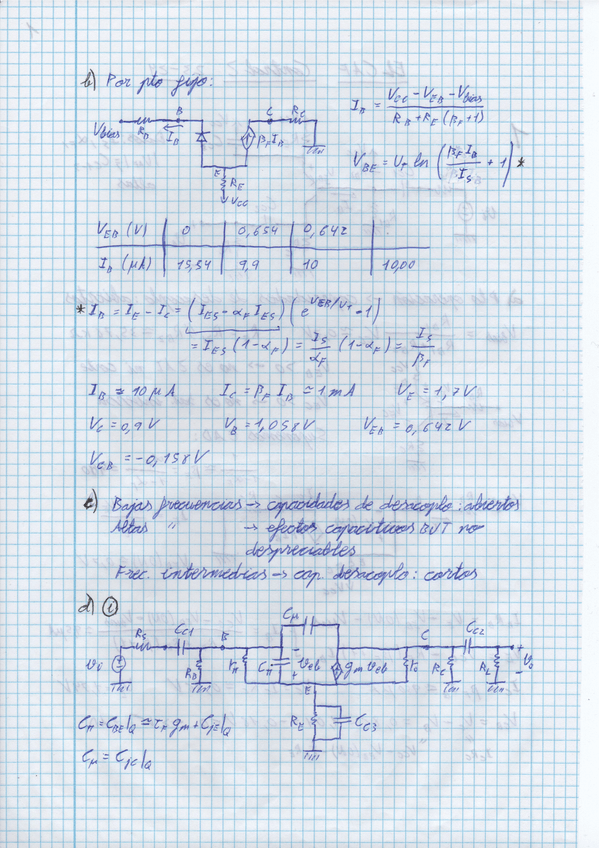 b) Por pto fijo:
Vbias R_B I_B B C R_C β_F I_B E R_E V_CC
I_B = (V_CC - V_EB - Vbias) / (R_B + R_E (β_F + 1))
V_BE = U_T ln (β_F I_B / I_S + 1) *
V_EB (V) | 0 | 0,654 | 0,642 |
I_B (μA) | 15,34 | 9,9 | 10 | 10,00
* I_B = I_E - I_C = (I_ES - α_F I_ES) (e^(V_EB/U_T) - 1)
= I_ES (1-α_F) = I_S/α_F (1-α_F) = I_S/β_F
I_B ≈ 10 μA I_C = β_F I_B ≈ 1 mA V_E = 1,7 V
V_C = 0,9 V V_B = 1,058 V V_EB = 0,642 V
V_CB = -0,158 V
c) Bajas frecuencias → capacidades de desacoplo: abiertos
Altas " → efectos capacitivos BJT no
despreciables
Frec. intermedias → cap. desacoplo: cortos
d) i
R_S C_C1 B R_B r_π C_π C_μ v_eb g_m v_eb r_o C C_C2 R_C R_L V_o
v_o E R_E C_C3
C_π = C_BE|_Q ≈ τ_F g_m + C_jE|_Q
C_μ = C_jC|_Q